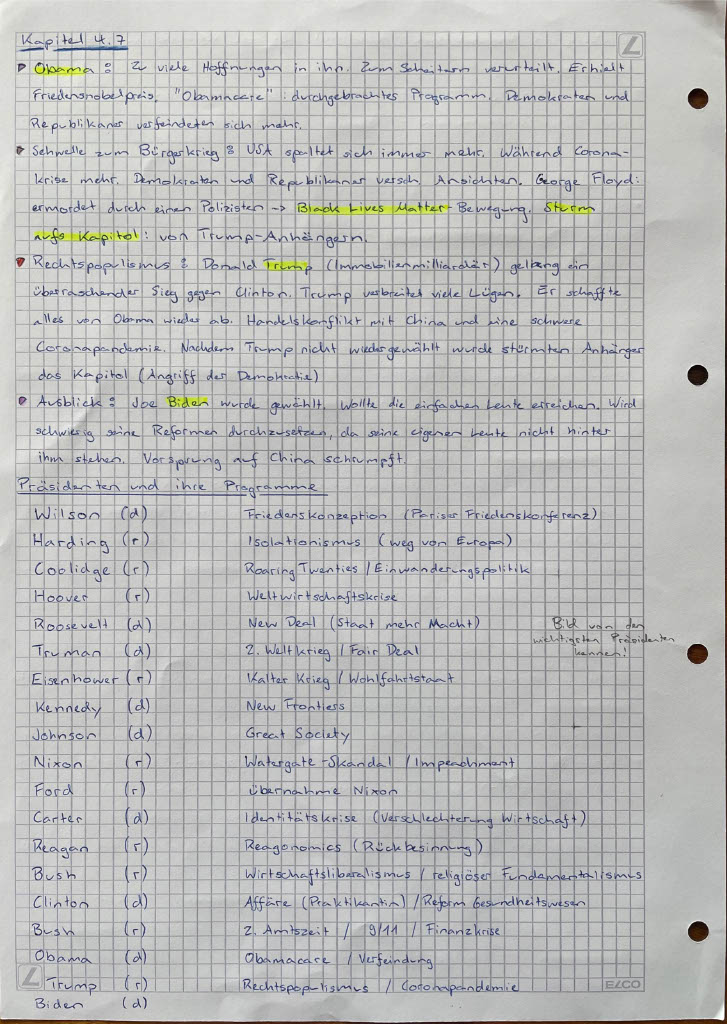 Kapitel 4.7
Obama: Zu viele Hoffnungen in ihn. Zum Scheitern verurteilt. Erhielt
Friedensnobelpreis. "Obamacare": durchgebrachtes Programm. Demokraten und
Republikaner verfeindeten sich mehr.
Schwelle zum Bürgerkrieg: USA spaltet sich immer mehr. Während Corona-
krise mehr. Demokraten und Republikaner versch. Ansichten. George Floyd:
ermordet durch einen Polizisten -> Black Lives Matter-Bewegung. Sturm
aufs Kapitol: von Trump-Anhängern.
Rechtspopulismus: Donald Trump (Immobilienmilliardär) gelang ein
überraschender Sieg gegen Clinton. Trump verbreitet viele Lügen. Er schaffte
alles von Obama wieder ab. Handelskonflikt mit China und eine schwere
Coronapandemie. Nachdem Trump nicht wiedergewählt wurde stürmten Anhänger
das Kapitol (Angriff der Demokratie)
Ausblick: Joe Biden wurde gewählt. Wollte die einfachen Leute erreichen. Wird
schwierig seine Reformen durchzusetzen, da seine eigenen Leute nicht hinter
ihm stehen. Vorsprung auf China schrumpft.
Präsidenten und ihre Programme
Wilson (d) Friedenskonzeption (Pariser Friedenskonferenz)
Harding (r) Isolationismus (weg von Europa)
Coolidge (r) Roaring Twenties / Einwanderungspolitik
Hoover (r) Weltwirtschaftskrise
Roosevelt (d) New Deal (Staat mehr Macht)
Bild von den
wichtigsten Präsidenten
kennen!
Truman (d) 2. Weltkrieg / Fair Deal
Eisenhower (r) Kalter Krieg / Wohlfahrtstaat
Kennedy (d) New Frontiers
Johnson (d) Great Society
Nixon (r) Watergate-Skandal / Impeachment
Ford (r) Übernahme Nixon
Carter (d) Identitätskrise (Verschlechterung Wirtschaft)
Reagan (r) Reagonomics (Rückbesinnung)
Bush (r) Wirtschaftsliberalismus / religiöser Fundamentalismus
Clinton (d) Affäre (Praktikantin) / Reform Gesundheitswesen
Bush (r) 2. Amtszeit / 9/11 / Finanzkrise
Obama (d) Obamacare / Verfeindung
Trump (r) Rechtspopulismus / Coronpandemie
ELCO
Biden (d)